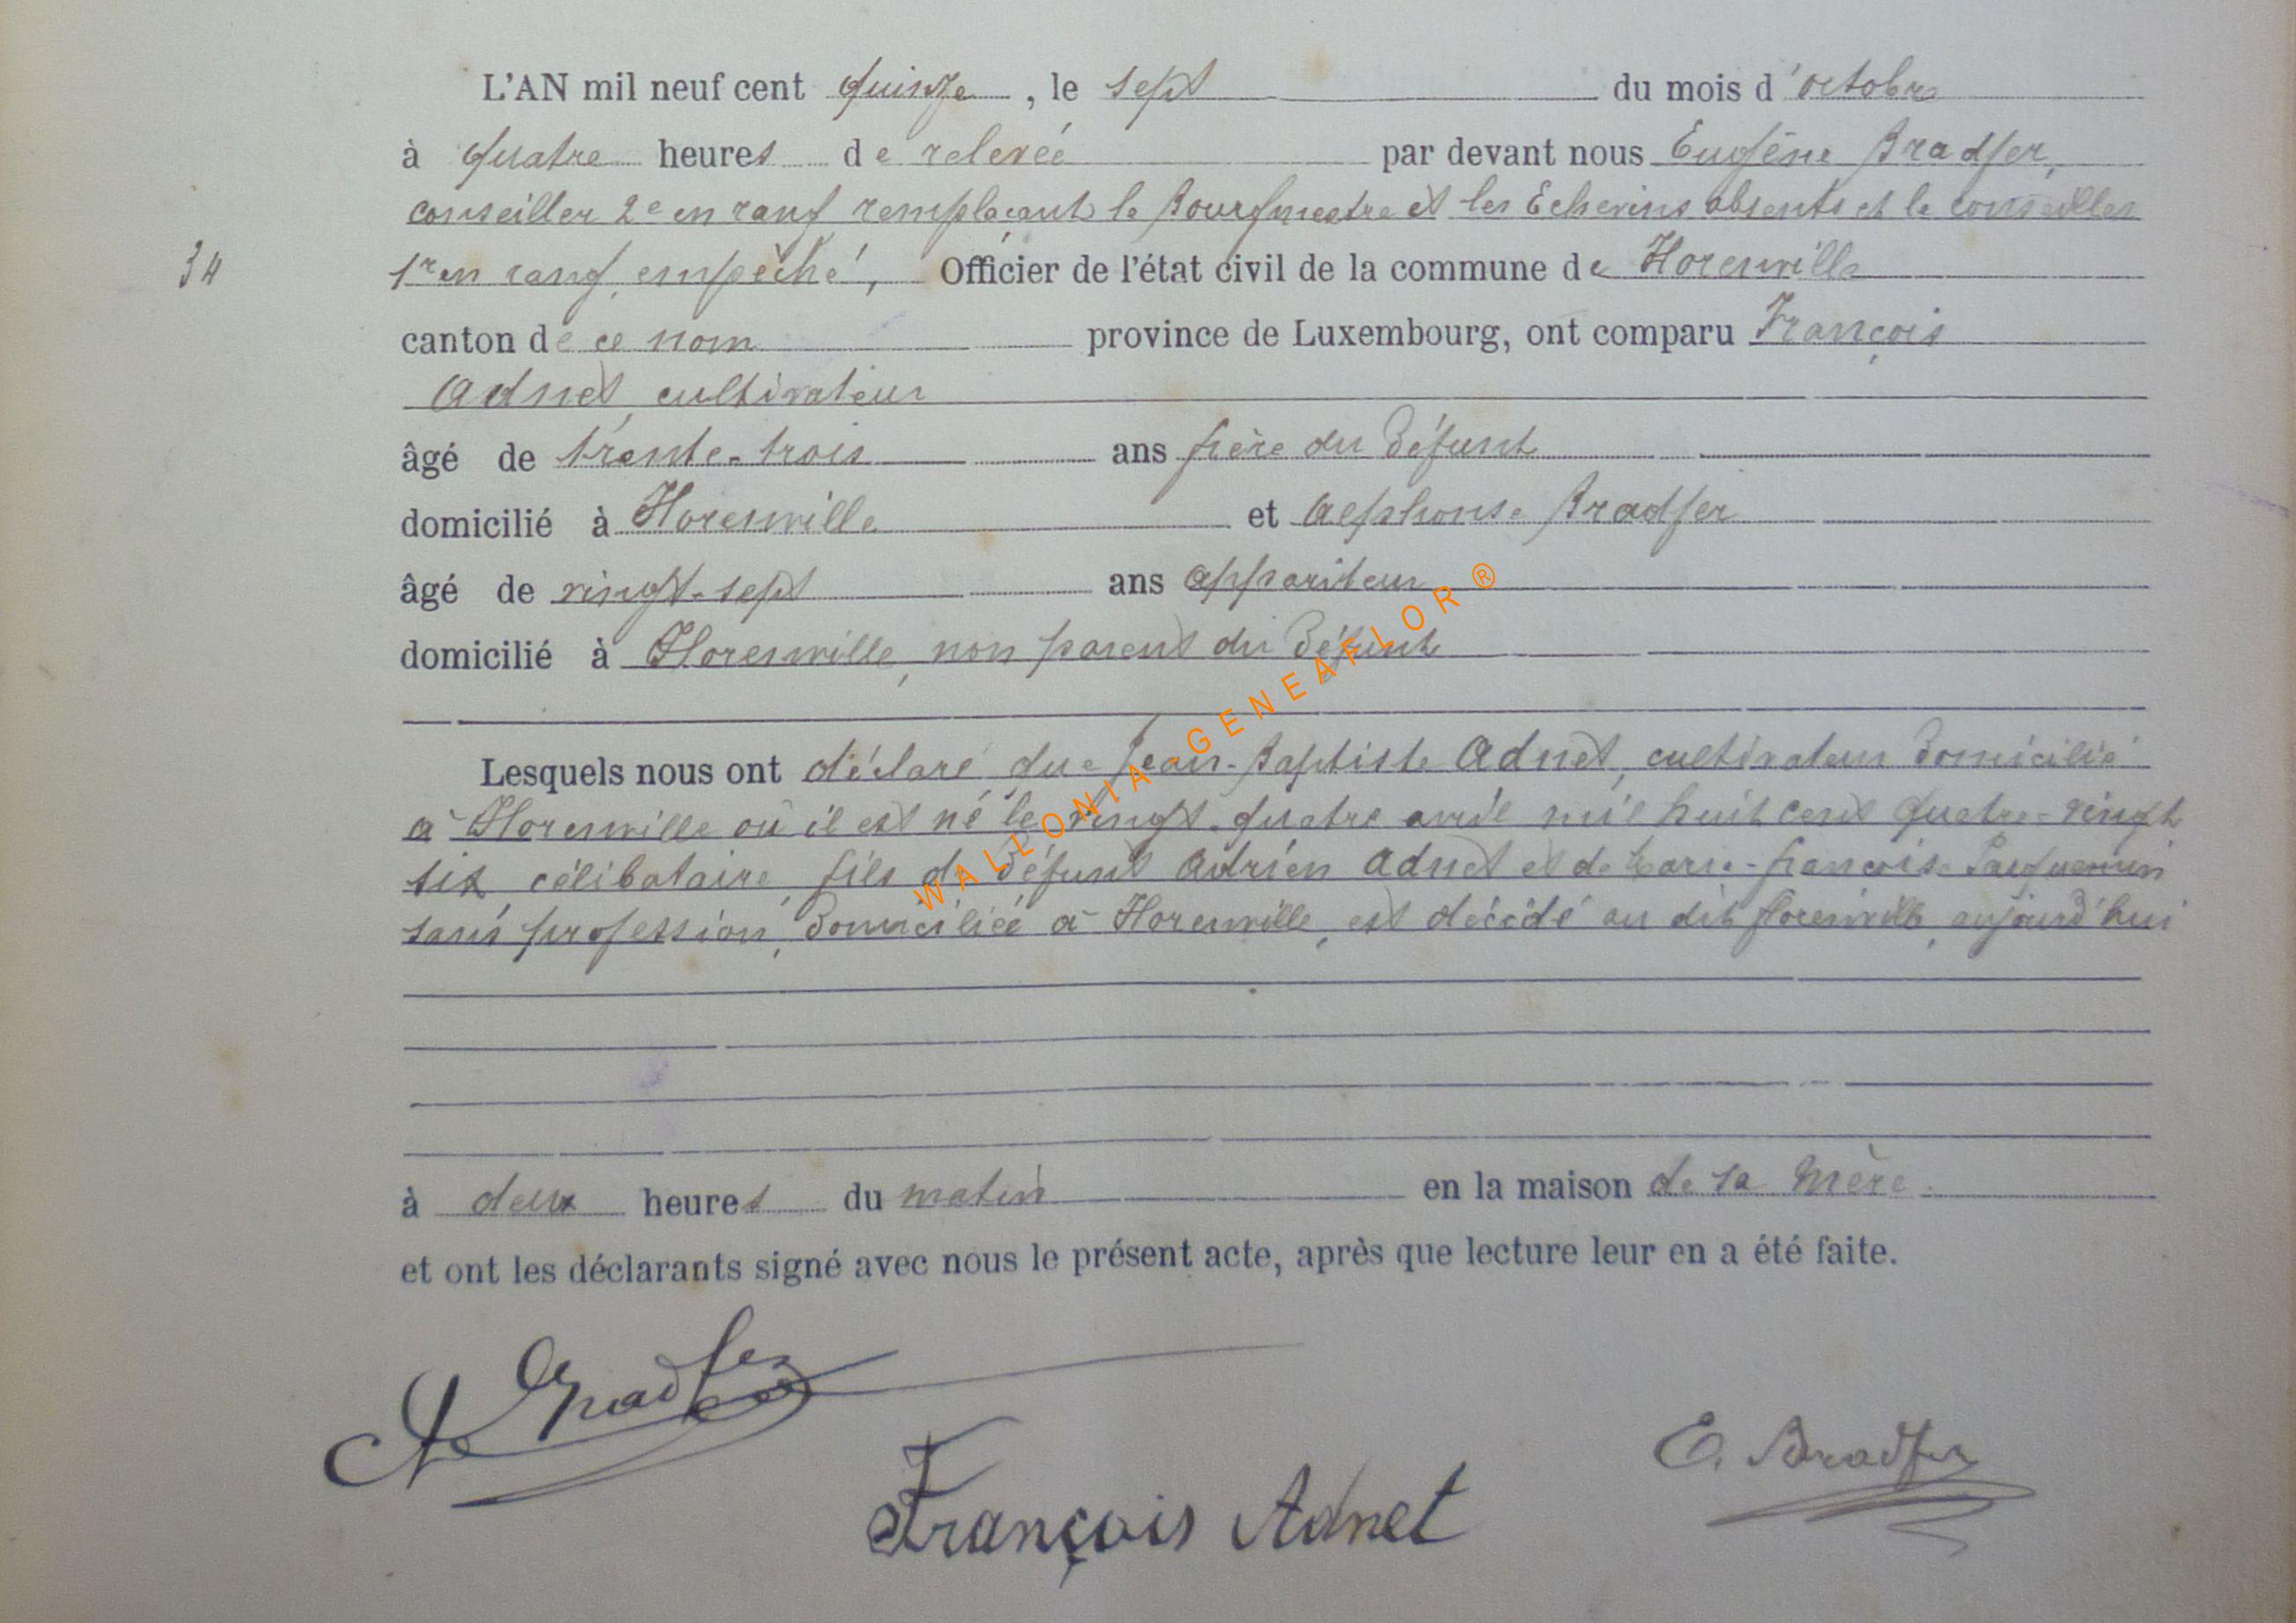 L'AN mil neuf cent quinze, le sept du mois d'octobre
à quatre heures de relevée par devant nous Eugène Bradfer,
conseiller 2e en rang remplaçant le Bourgmestre et les Echevins absents et le conseiller
34
1r en rang, empêché, Officier de l'état civil de la commune de Florenville
canton de ce nom province de Luxembourg, ont comparu François
Adnet, cultivateur
âgé de trente-trois ans frère du défunt
domicilié à Florenville et Alphonse Bradfer
âgé de vingt-sept ans appariteur
domicilié à Florenville, non parent du défunt
Lesquels nous ont déclaré que Jean-Baptiste Adnet, cultivateur domicilié
à Florenville où il est né le vingt-quatre avril mil huit cent quatre-vingt
six, célibataire, fils de défunt Adrien Adnet et de Marie-Françoise
sans profession, domiciliée à Florenville, est décédé au dit Florenville, aujourd'hui
à deux heures du matin en la maison de sa mère.
et ont les déclarants signé avec nous le présent acte, après que lecture leur en a été faite.
Bradfer
François Adnet
E. Bradfer
WALLONIA GENEAFLOR ®